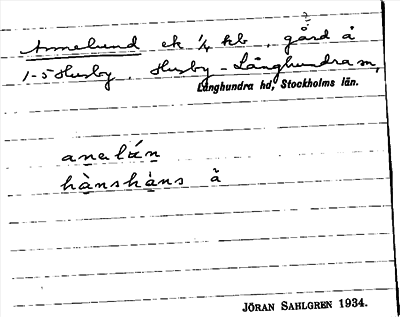 Annelund ek 1/4 kb, gård å
1-5 Husby. Husby-Långhundra sn,
Långhundra hd, Stockholms län.
analán
hànshàns ã
JÖRAN SAHLGREN 1934.